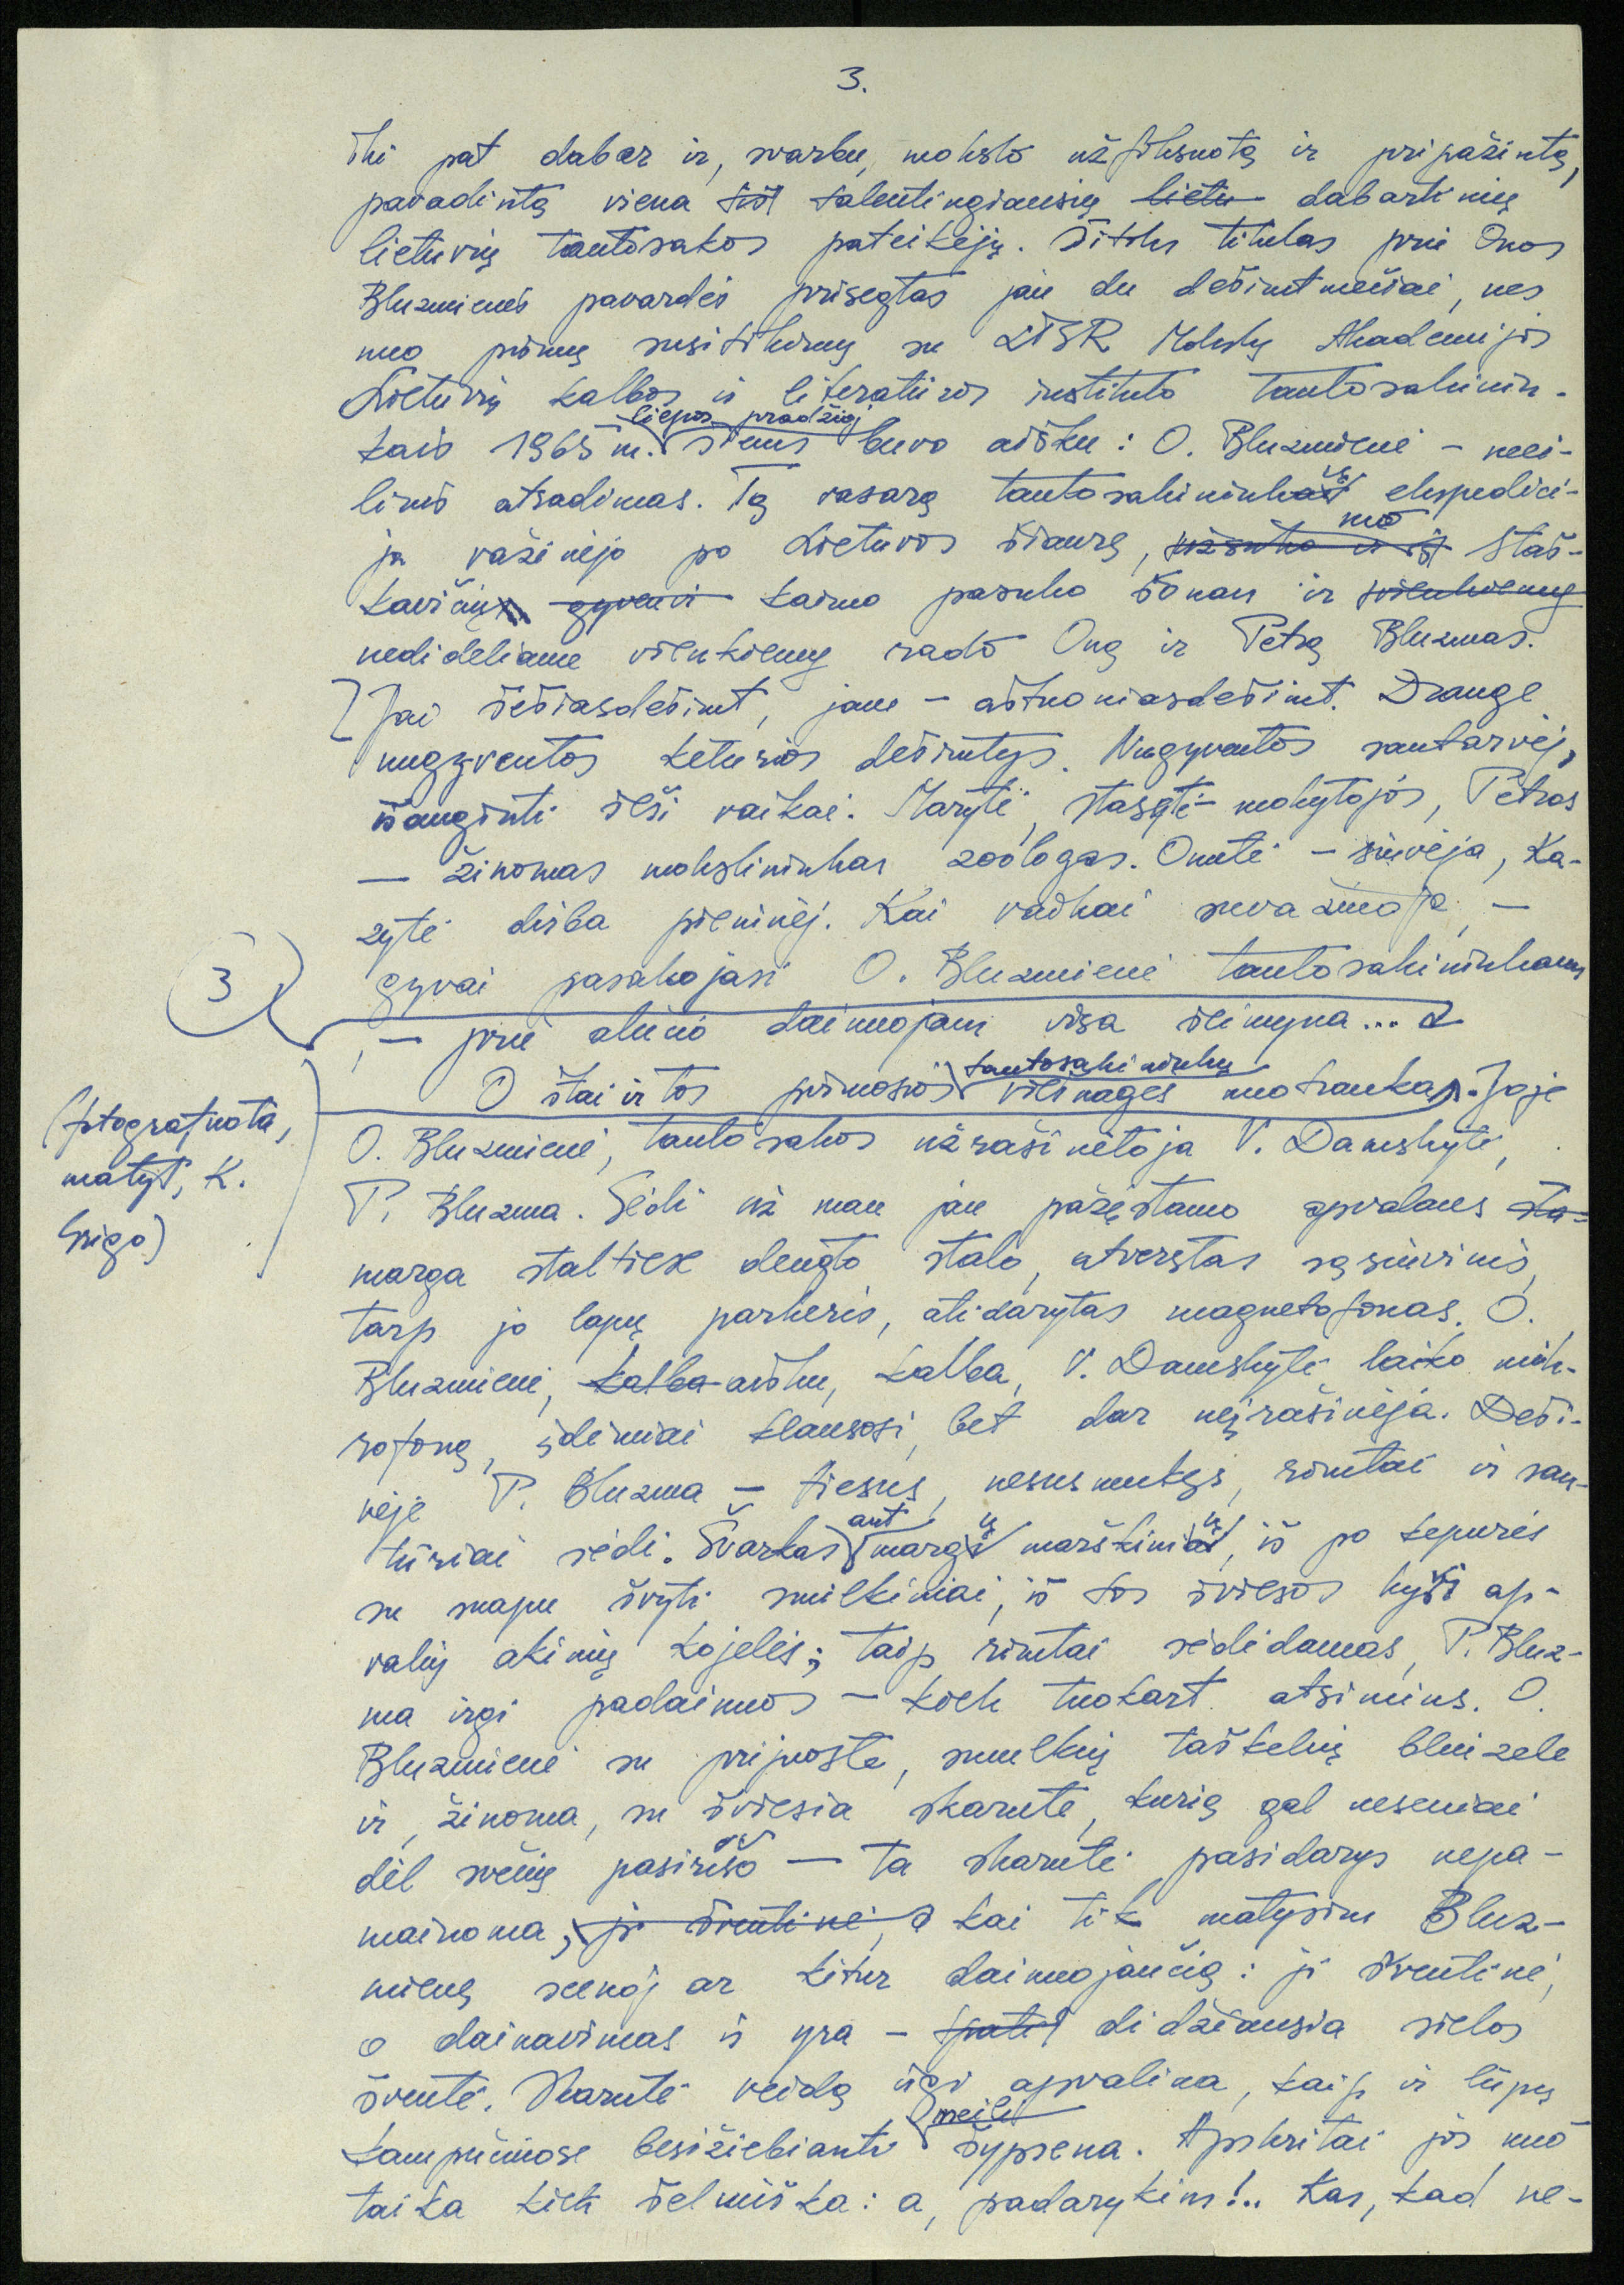 3.
iki pat dabar ir, svarbu, mokslo užfiksuotą ir pripažintą,
pavadintą viena iš talentingiausių lietu dabartinių
lietuvių tautosakos pateikėjų. Šitoks titulas prie Onos
Bluzmienės pavardės prisegtas jau du dešimtmečiai, nes
nuo pirmų susitikimų su LTSR Mokslų Akademijos
Lietuvių kalbos ir literatūros instituto tautosakinin-
liepos pradžioj
kais 1965 m. jiems buvo aišku: O. Bluzmienė – neei-
linis atradimas. Tą vasarą tautosakininkų ekspedici-
nuo
ja važinėjo po Lietuvos šiaurę, užsuko ir iš Staš-
kaičių gyveni kaimo pasuko šonan ir vienkiemy
nedideliame vienkiemy rado Oną ir Petrą Bluzmas.
Jai šešiasdešimt, jam – aštuoniasdešimt. Drauge
nugyventos keturios dešimtys. Nugyventos santarvėj,
išauginti šeši vaikai. Marytė, Stasytė – mokytojos, Petras
— žinomas mokslininkas zoologas. Onutė – siuvėja, Ka-
zytė dirba pieninėj. Kai vaikai suvažiuoja, –
gyvai pasakojasi O. Bluzmienė tautosakininkams
3
, – prie alučio dainuojam visa šeimyna...
tautosakininkų
O štai ir tos pirmosios viešnagės nuotrauka. Joje
(fotografuota,
matyt, K.
Grigo)
O. Bluzmienė, tautosakos užrašinėtoja V. Daniskytė,
P. Bluzma. Sėdi už man jau pažįstamo apvalaus sta-
marga staltiese dengto stalo, atverstas sąsiuvinis,
tarp jo lapų parkeris, atidarytas magnetofonas. O.
Bluzmienė, kalba aišku, kalba, V. Daniskytė laiko mik-
rofoną, įdėmiai klausosi, bet dar neįrašinėja. Deši-
nėje P. Bluzma – tiesus, nesusmukęs, rimtai ir san-
ant
tūriai sėdi. Švarkas margų marškinių, iš po kepurės
su snapu švyti smilkiniai, iš tos šviesos kyši ap-
valių akinių kojelės; taip rimtai sėdėdamas, P. Bluz-
ma irgi padainuos – kiek tuokart atsimins. O.
Bluzmienė su prijuoste, smulkių taškelių bliuzele
ir, žinoma, su šviesia skarute, kurią gal neseniai
dėl svečių pasirišo — ta skarutė pasidarys nepa-
mainoma, ji šventinė, kai tik matysim Bluz-
mienę scenoj ar kitur dainuojančią: ji šventinė,
o dainavimas ir yra – pati didžiausia sielos
šventė. Skarutė veidą irgi apvalina, kaip ir lūpų
meili
kampučiuose besižiebianti šypsena. Apskritai jos nuo
taika kiek šelmiška: a, padarykim!.. Kas, kad ne-